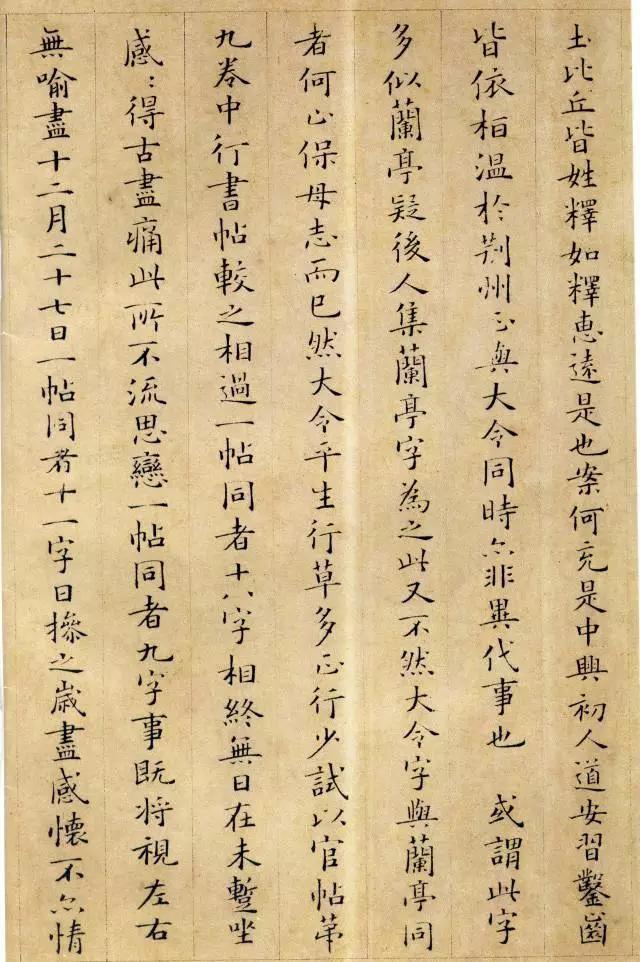 土比丘皆姓釋如釋惠遠是也案何充是中興初人道安習鑿齒
皆依桓溫於荆州正與大令同時亦非異代事也 或謂此字
多似蘭亭疑後人集蘭亭字為之此又不然大令字與蘭亭同
者何止保母志而已然大令平生行草多正行少試以官帖苐
九卷中行書帖較之相過一帖同者十八字相終無日在未蹔坐
感〻得古盡痛此所不流思戀一帖同者九字事既將視左右
無喻盡十二月二十七日一帖同者十一字日摻之歲盡感懷不亦情